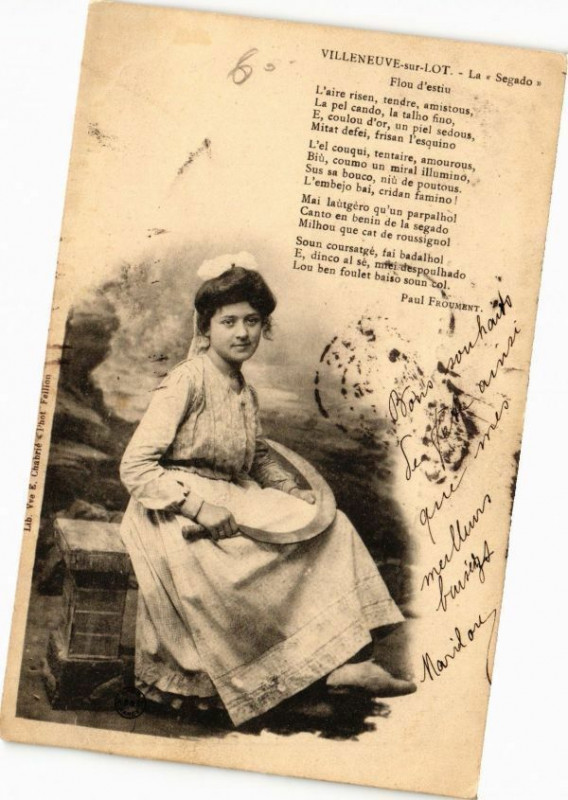 6
VILLENEUVE-sur-LOT. - La « Segado »
Flou d'estiu
L'aire risen, tendre, amistous,
La pel cando, la talho fino,
E, coulou d'or, un piel sedous,
Mitat defei, frisan l'esquino
L'el couqui, tentaire, amourous,
Biù, coumo un miral illumino,
Sus sa bouco, niù de poutous.
L'embejo bai, cridan famino !
Mai laùtgéro qu'un parpalhol
Canto en benin de la segado
Milhou que cat de roussignol
Soun coursatgé, fai badalhol
E, dinco al sé, miei despoulhado
Lou ben foulet baiso soun col.
Paul FROUMENT.
Bons souhaits
de fête ainsi
que mes
meilleurs
baisers
Marilou
Lib. Vve E. Chabrié & Phot Fellion